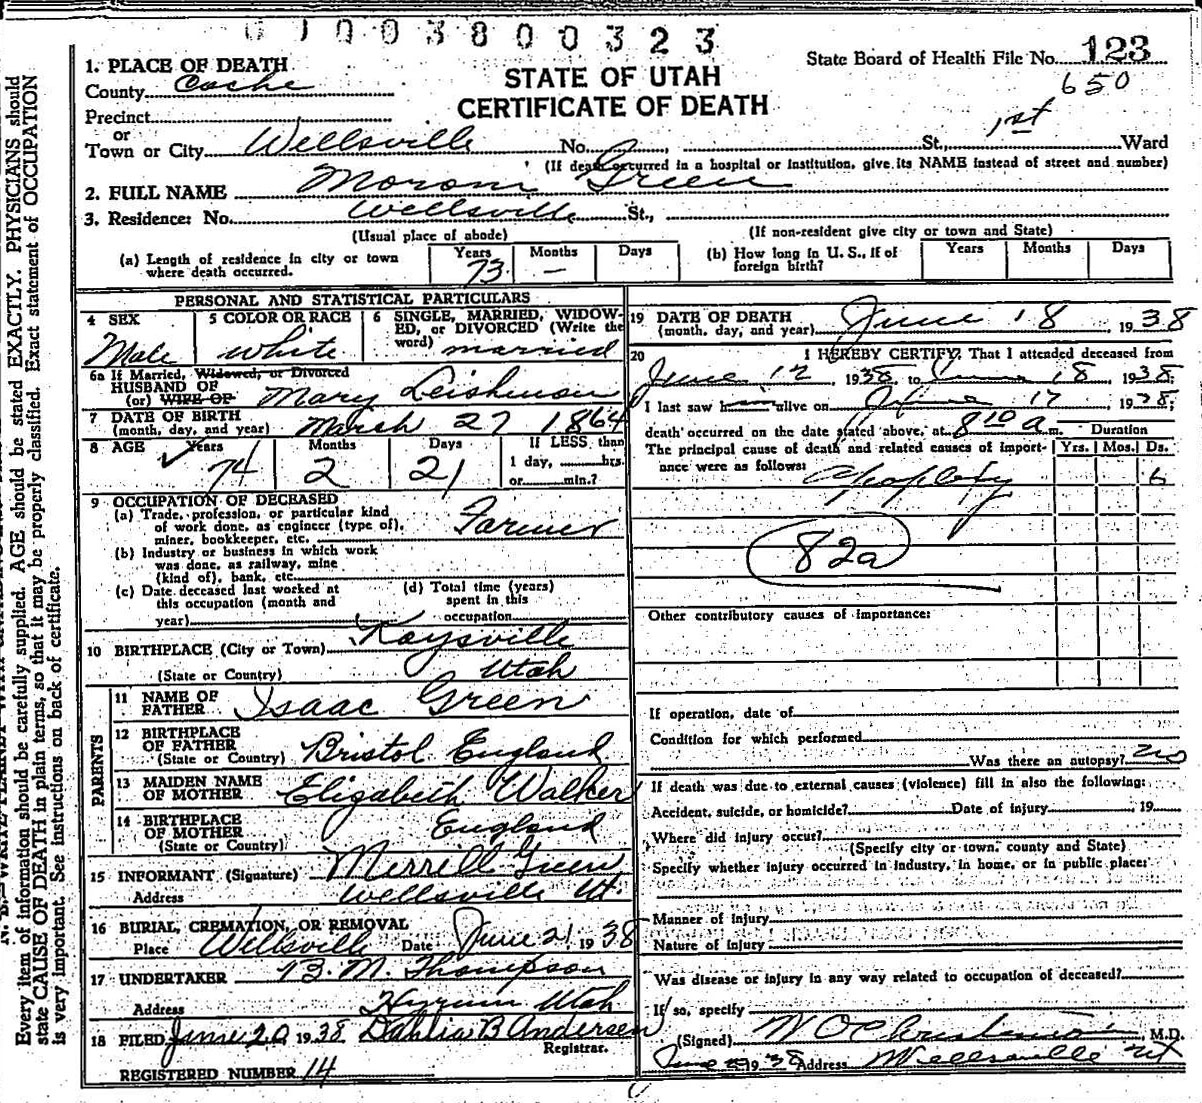 0100380 0323
State Board of Health File No. 123
650
STATE OF UTAH
CERTIFICATE OF DEATH
1. PLACE OF DEATH
County Cache
Precinct
or
Town or City Wellsville No. St., 1st Ward
(If death occurred in a hospital or institution, give its NAME instead of street and number)
2. FULL NAME Moroni Green
3. Residence: No. Wellsville St.,
(Usual place of abode) (If non-resident give city or town and State)
(a) Length of residence in city or town where death occurred. Years 73 Months - Days
(b) How long in U. S., if of foreign birth? Years Months Days
PERSONAL AND STATISTICAL PARTICULARS
4 SEX Male
5 COLOR OR RACE White
6 SINGLE, MARRIED, WIDOWED, or DIVORCED (Write the word) married
6a If Married, Widowed, or Divorced
HUSBAND OF
(or) WIFE OF Mary Leishman
7 DATE OF BIRTH
(month, day, and year) March 27 1864
8 AGE Years 74 Months 2 Days 21 If LESS than
1 day, hrs.
or min.?
9 OCCUPATION OF DECEASED
(a) Trade, profession, or particular kind
of work done, as engineer (type of),
miner, bookkeeper, etc. Farmer
(b) Industry or business in which work
was done, as railway, mine
(kind of), bank, etc.
(c) Date deceased last worked at
this occupation (month and
year)
(d) Total time (years)
spent in this
occupation
10 BIRTHPLACE (City or Town) Kaysville
(State or Country) Utah
PARENTS
11 NAME OF
FATHER Isaac Green
12 BIRTHPLACE
OF FATHER
(State or Country) Bristol England
13 MAIDEN NAME
OF MOTHER Elizabeth Walker
14 BIRTHPLACE
OF MOTHER
(State or Country) England
15 INFORMANT (Signature) Merrill Green
Address Wellsville Ut.
16 BURIAL, CREMATION, OR REMOVAL
Place Wellsville Date June 21 1938
17 UNDERTAKER B. M. Thompson
Address Hyrum Utah
18 FILED June 20 1938 Dahlia B Andersen
Registrar.
REGISTERED NUMBER 14
19 DATE OF DEATH
(month, day, and year) June 18, 1938
20 I HEREBY CERTIFY, That I attended deceased from
June 12, 1938 to June 18, 1938
I last saw him alive on June 17, 1938;
death occurred on the date stated above, at 8 10 a m. Duration
The principal cause of death and related causes of importance were as follows: Yrs. Mos. Ds.
Apoplexy 6
82a
Other contributory causes of importance:
If operation, date of
Condition for which performed
Was there an autopsy? no
If death was due to external causes (violence) fill in also the following:
Accident, suicide, or homicide? Date of injury 19
Where did injury occur?
(Specify city or town, county and State)
Specify whether injury occurred in industry, in home, or in public place:
Manner of injury
Nature of injury
Was disease or injury in any way related to occupation of deceased?
If so, specify
(Signed) W O Christensen, M.D.
June 1938 Address Wellsville Ut
Every item of information should be carefully supplied. AGE should be stated EXACTLY. PHYSICIANS should
state CAUSE OF DEATH in plain terms, so that it may be properly classified. Exact statement of OCCUPATION
is very important. See instructions on back of certificate.